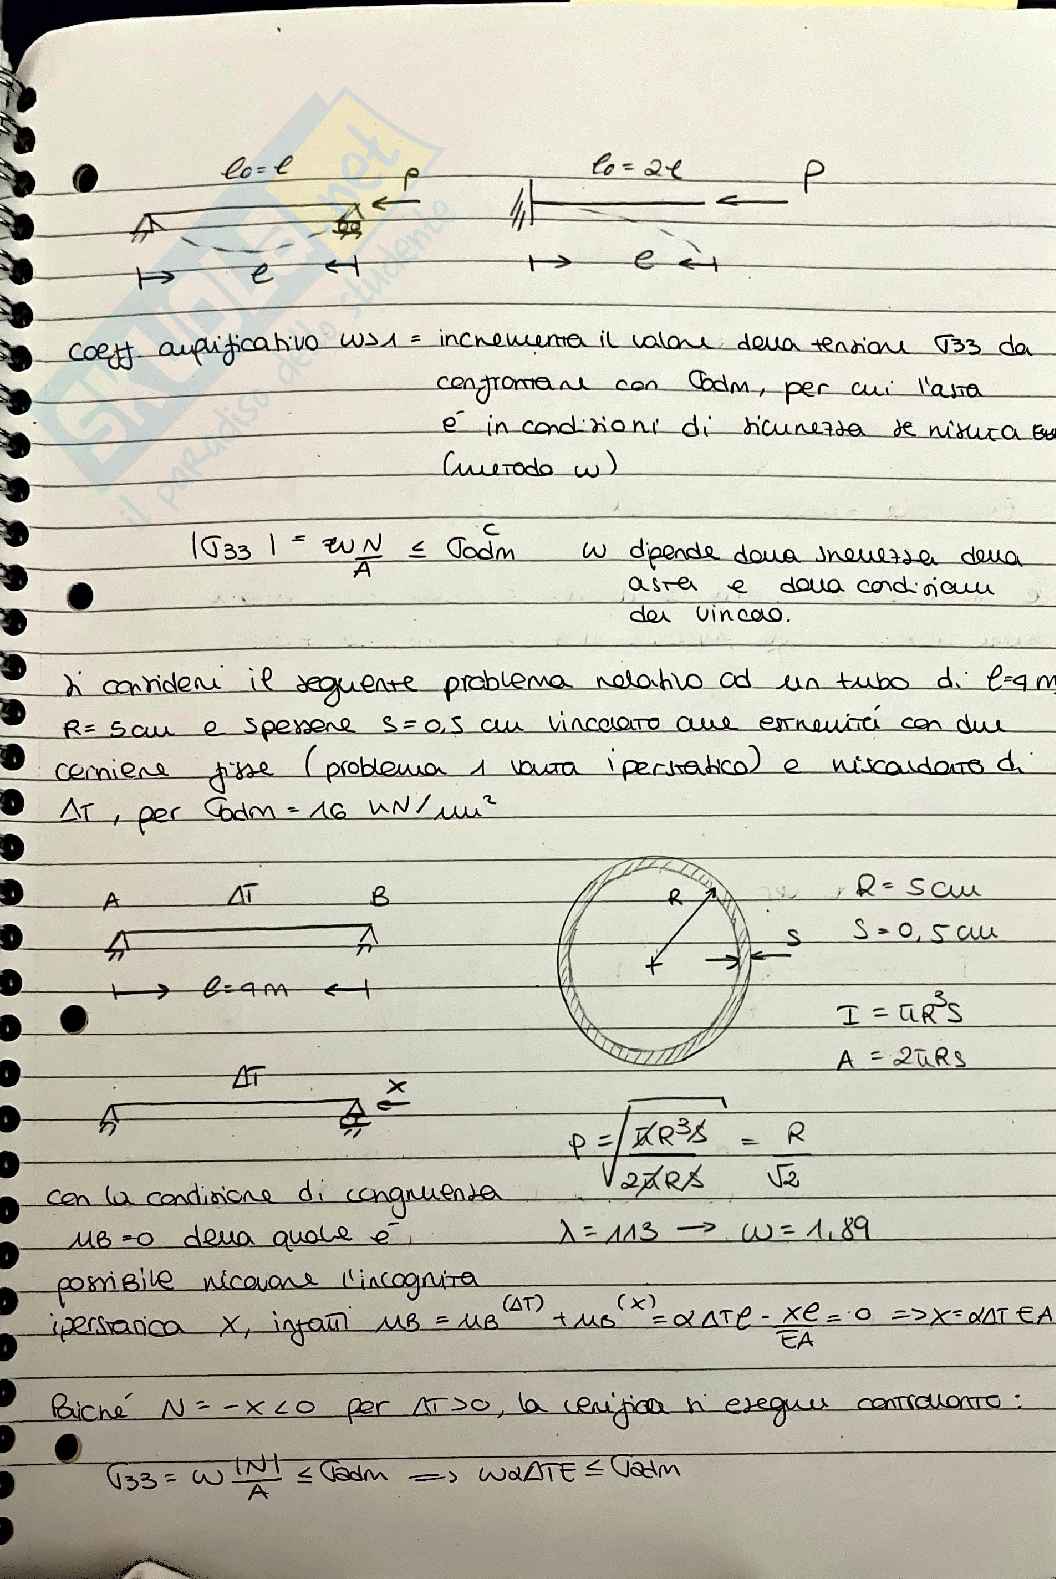 l₀ = l
P
l₀ = 2l
P
l
l
coeff. amplificativo ω>1 = incrementa il valore della tensione σ33 da
confrontare con σadm, per cui l'asta
é in condizioni di sicurezza se risulta
(metodo ω)
|σ33| = ωN/A ≤ σadm^c ω dipende dalla snellezza della
asta e dalla condizioni
dei vincolo.
Si consideri il seguente problema relativo ad un tubo di l=4m
R= 5cm e spessore s=0,5 cm vincolato alle estremità con due
cerniere fisse (problema 1 volta iperstatico) e riscaldato di
ΔT, per σadm = 16 kN/mm²
A ΔT B
l=4m
R
s
R= 5cm
S= 0,5cm
I = πR³S
A = 2πRs
ΔT
x
ρ = √(πR³s/2πRs) = R/√2
con la condizione di congruenza
uB=0 della quale é
λ= 113 → ω= 1,89
possibile ricavare l'incognita
iperstatica x, infatti uB = uB^(ΔT) + uB^(x) = αΔTl - xl/EA = 0 => x=αΔT EA
Poiché N = -x<0 per ΔT>0, la verifica si esegue controllando:
σ33 = ω |N|/A ≤ σadm => ωαΔTE ≤ σadm
SKUOLA.net
il paradiso dello studente